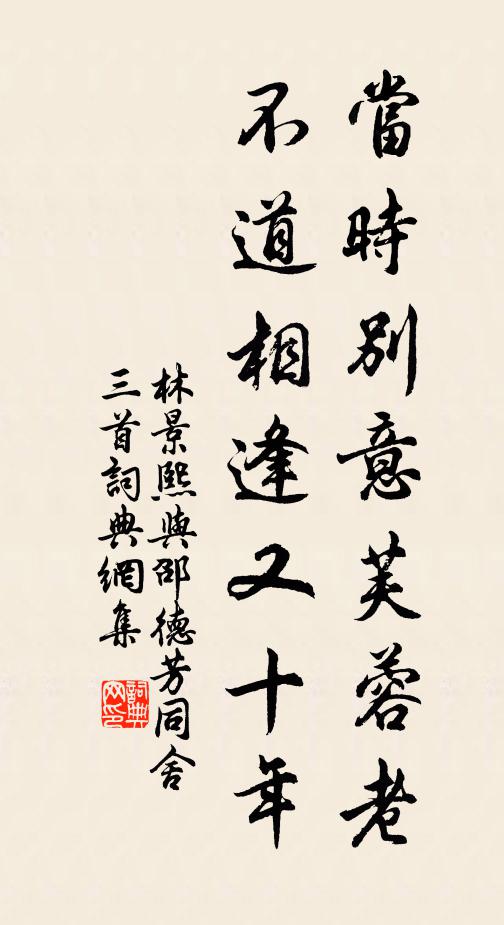 當時別意芙蓉老
不道相逢又十年
林景熙與邵德芳同舍
三首詞典網集
詞典
网印